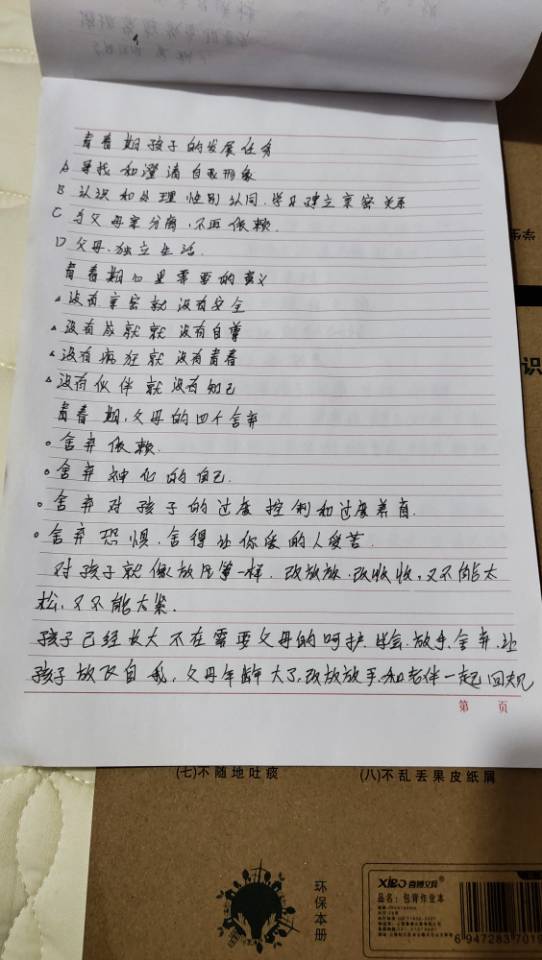 青春期孩子的发展任务
A 寻找和澄清自我形象
B 认识和处理性别认同.学习建立亲密关系
C 与父母亲分离,不再依赖.
D 父母.独立生活.
青春期心里需要的意义
没有亲密就没有安全
没有成就就没有自尊
没有疯狂就没有青春
没有伙伴就没有知己
青春期,父母的四个舍弃
舍弃依赖.
舍弃神化的自己.
舍弃对孩子的过度控制和过度养育.
舍弃恐惧.舍得让你爱的人受苦.
对孩子就像放风筝一样.改放放.改收收,又不能太
松,又不能太紧.
孩子已经长大不在需要父母的呵护.学会.放手.舍弃.让
孩子放飞自我,父母年龄大了,改放放手.和老伴一起回
第 页
(七)不随地吐痰
(八)不乱丢果皮紙屑
环保本册
品名:包背作业本
6 947283 7019
学生
识